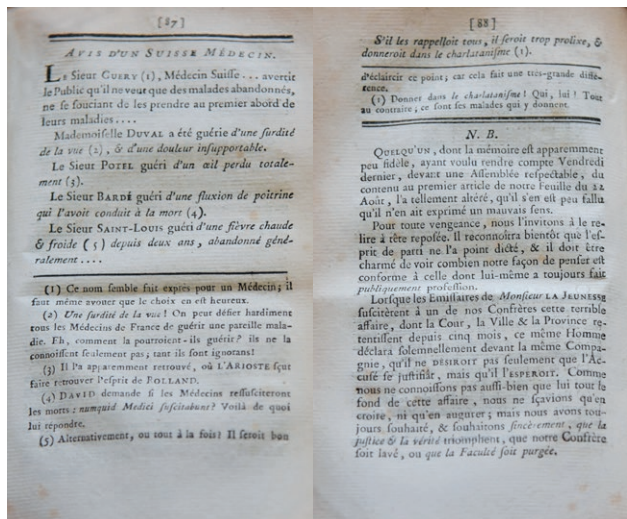 [87]
AVIS D'UN SUISSE MÉDECIN.
LE Sieur GUERY (1), Médecin Suisse... avertit
le Public qu'il ne veut que des malades abandonnés,
ne se souciant de les prendre au premier abord de
leurs maladies....
Mademoiselle DUVAL a été guérie d'une surdité
de la vue (2), & d'une douleur insupportable.
Le Sieur POTEL guéri d'un œil perdu totale-
ment (3).
Le Sieur BARDÉ guéri d'une fluxion de poitrine
qui l'avoit conduit à la mort (4).
Le Sieur SAINT-LOUIS guéri d'une fièvre chaude
& froide (5) depuis deux ans, abandonné géné-
ralement....
(1) Ce nom semble fait exprès pour un Médecin; il
faut même avouer que le choix en est heureux.
(2) Une surdité de la vue! On peut défier hardiment
tous les Médecins de France de guérir une pareille mala-
die. Eh, comment la pourroient-ils guérir? ils ne la
connoissent seulement pas; tant ils sont ignorans!
(3) Il l'a apparemment retrouvé, où L'ARIOSTE sçut
faire retrouver l'esprit de ROLLAND.
(4) DAVID demande si les Médecins ressusciteront
les morts: numquid Medici suscitabunt? Voilà de quoi
lui répondre.
(5) Alternativement, ou tout à la fois? Il seroit bon
[88]
S'il les rappelloit tous, il seroit trop prolixe, &
donneroit dans le charlatanisme (1).
d'éclaircir ce point; car cela fait une très-grande diffé-
rence.
(1) Donner dans le charlatanisme! Qui, lui! Tout
au contraire; ce sont ses malades qui y donnent.
N. B.
QUELQU'UN, dont la mémoire est apparemment
peu fidèle, ayant voulu rendre compte Vendredi
dernier, devant une Assemblée respectable, du
contenu au premier article de notre Feuille du 22
Août, l'a tellement altéré, qu'il s'en est peu fallu
qu'il n'en ait exprimé un mauvais sens.
Pour toute vengeance, nous l'invitons à le re-
lire à tête reposée. Il reconnoîtra bientôt que l'es-
prit de parti ne l'a point dicté, & il doit être
charmé de voir combien notre façon de penser est
conforme à celle dont lui-même a toujours fait
publiquement profession.
Lorsque les Emissaires de Monsieur LA JEUNESSE
suscitèrent à un de nos Confrères cette terrible
affaire, dont la Cour, la Ville & la Province re-
tentissent depuis cinq mois, ce même Homme
déclara solemnellement devant la même Compa-
gnie, qu'il ne DESIROIT pas seulement que l'Ac-
cusé se justifiât, mais qu'il l'ESPEROIT. Comme
nous ne connoissons pas aussi-bien que lui tout le
fond de cette affaire, nous ne sçavions qu'en
croire, ni qu'en augurer; mais nous avons tou-
jours souhaité, & souhaitons sincèrement, que la
justice & la vérité triomphent, que notre Confrère
soit lavé, ou que la Faculté soit purgée.